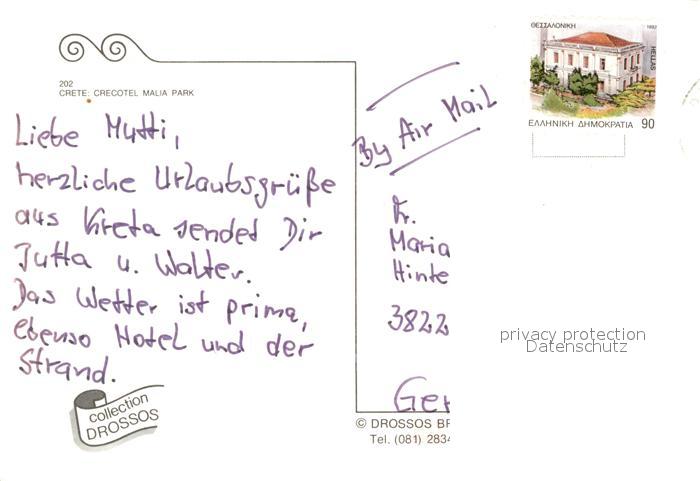 202
CRETE: CRECOTEL MALIA PARK
Liebe Mutti,
herzliche Urlaubsgrüße
aus Kreta sendet Dir
Jutta u. Walter.
Das Wetter ist prima,
ebenso Hotel und der
Strand.
collection
DROSSOS
By Air Mail
ΘΕΣΣΑΛΟΝΙΚΗ 1992
HELLAS
ΕΛΛΗΝΙΚΗ ΔΗΜΟΚΡΑΤΙΑ 90
Fr.
Maria
Hinte
3822
Ger
privacy protection
Datenschutz
© DROSSOS BR
Tel. (081) 2834